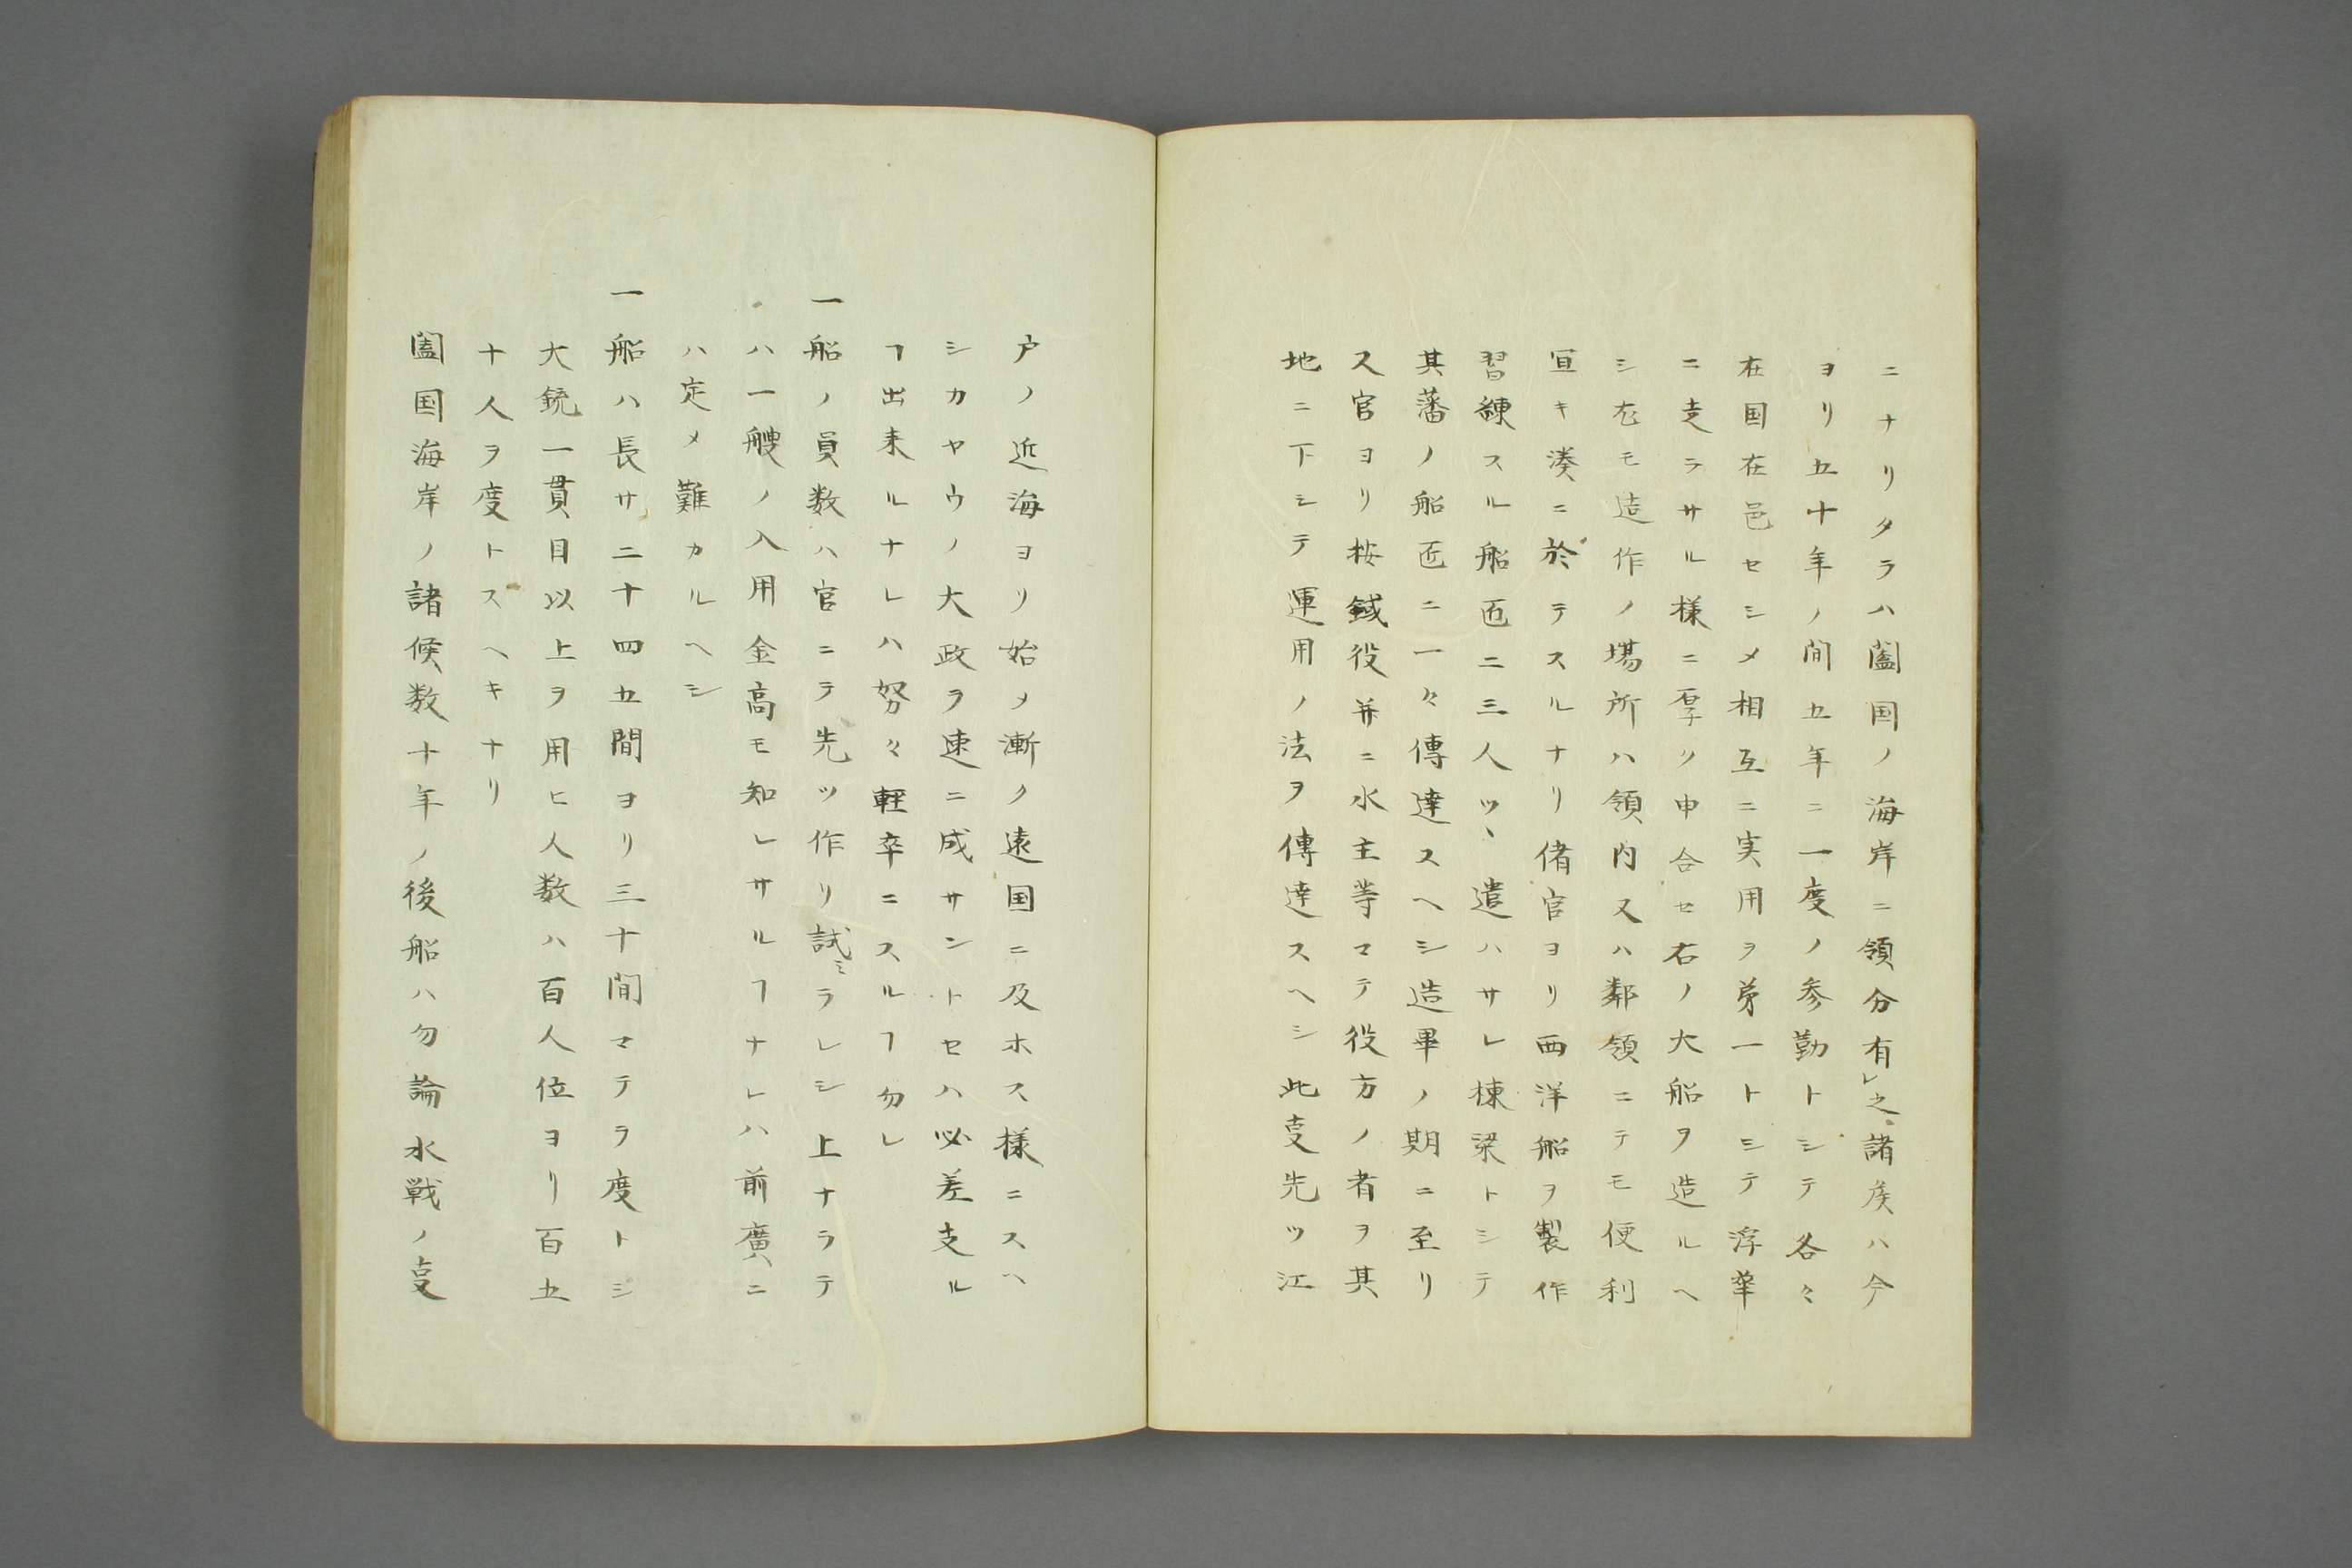 ニナリタラハ闔国ノ海岸ニ領分有レ之諸矦ハ今
ヨリ五十年ノ間五年ニ一度ノ参勤トシテ各々
在国在邑セシメ相互ニ実用ヲ第一トシテ浮華
ニ走ラサル様ニ厚ク申合セ右ノ大船ヲ造ルヘ
シ尤モ造作ノ場所ハ領内又ハ鄰領ニテモ便利
宜キ湊ニ於テスルナリ偖官ヨリ西洋船ヲ製作
習練スル船匠二三人ツヽ遣ハサレ棟梁トシテ
其藩ノ船匠ニ一々傳達スヘシ造畢ノ期ニ至リ
又官ヨリ按鍼役并ニ水主等マテ役方ノ者ヲ其
地ニ下シテ運用ノ法ヲ傳達スヘシ此𠮷先ツ江
戸ノ近海ヨリ始メ漸ク遠国ニ及ホス様ニスヘ
シカヤウノ大政ヲ速ニ成サントセハ必差支ル
ヿ出来ルナレハ努々軽卒ニスルヿ勿レ
一船ノ員数ハ官ニテ先ツ作リ試ミラレシ上ナラテ
ハ一艘ノ入用金高モ知レサルヿナレハ前廣ニ
ハ定メ難カルヘシ
一船ハ長サ二十四五間ヨリ三十間マテヲ度トシ
大銃一貫目以上ヲ用ヒ人数ハ百人位ヨリ百五
十人ヲ度トスヘキナリ
闔国海岸ノ諸候数十年ノ後船ハ勿論水戦ノ叓